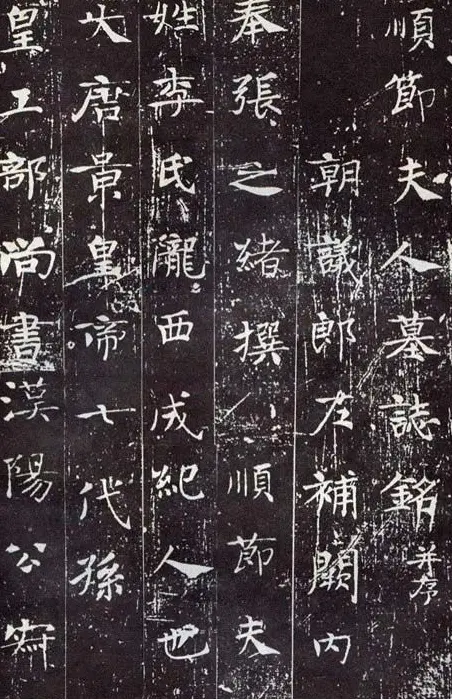 順節夫人墓誌銘并序
朝議郎左補闕內
奉張之緒撰順節夫
姓李氏瀧西成紀人也
大唐景皇帝七代孫
皇工部尚書漢陽公